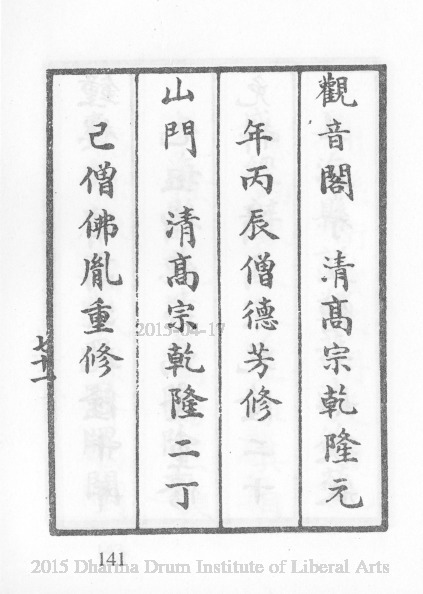 觀音閣 清髙宗乾隆元
年丙辰僧德芳修
山門 清髙宗乾隆二丁
己僧佛胤重修
七十一
2015-04-17
141
2015 Dharma Drum Institute of Liberal Arts